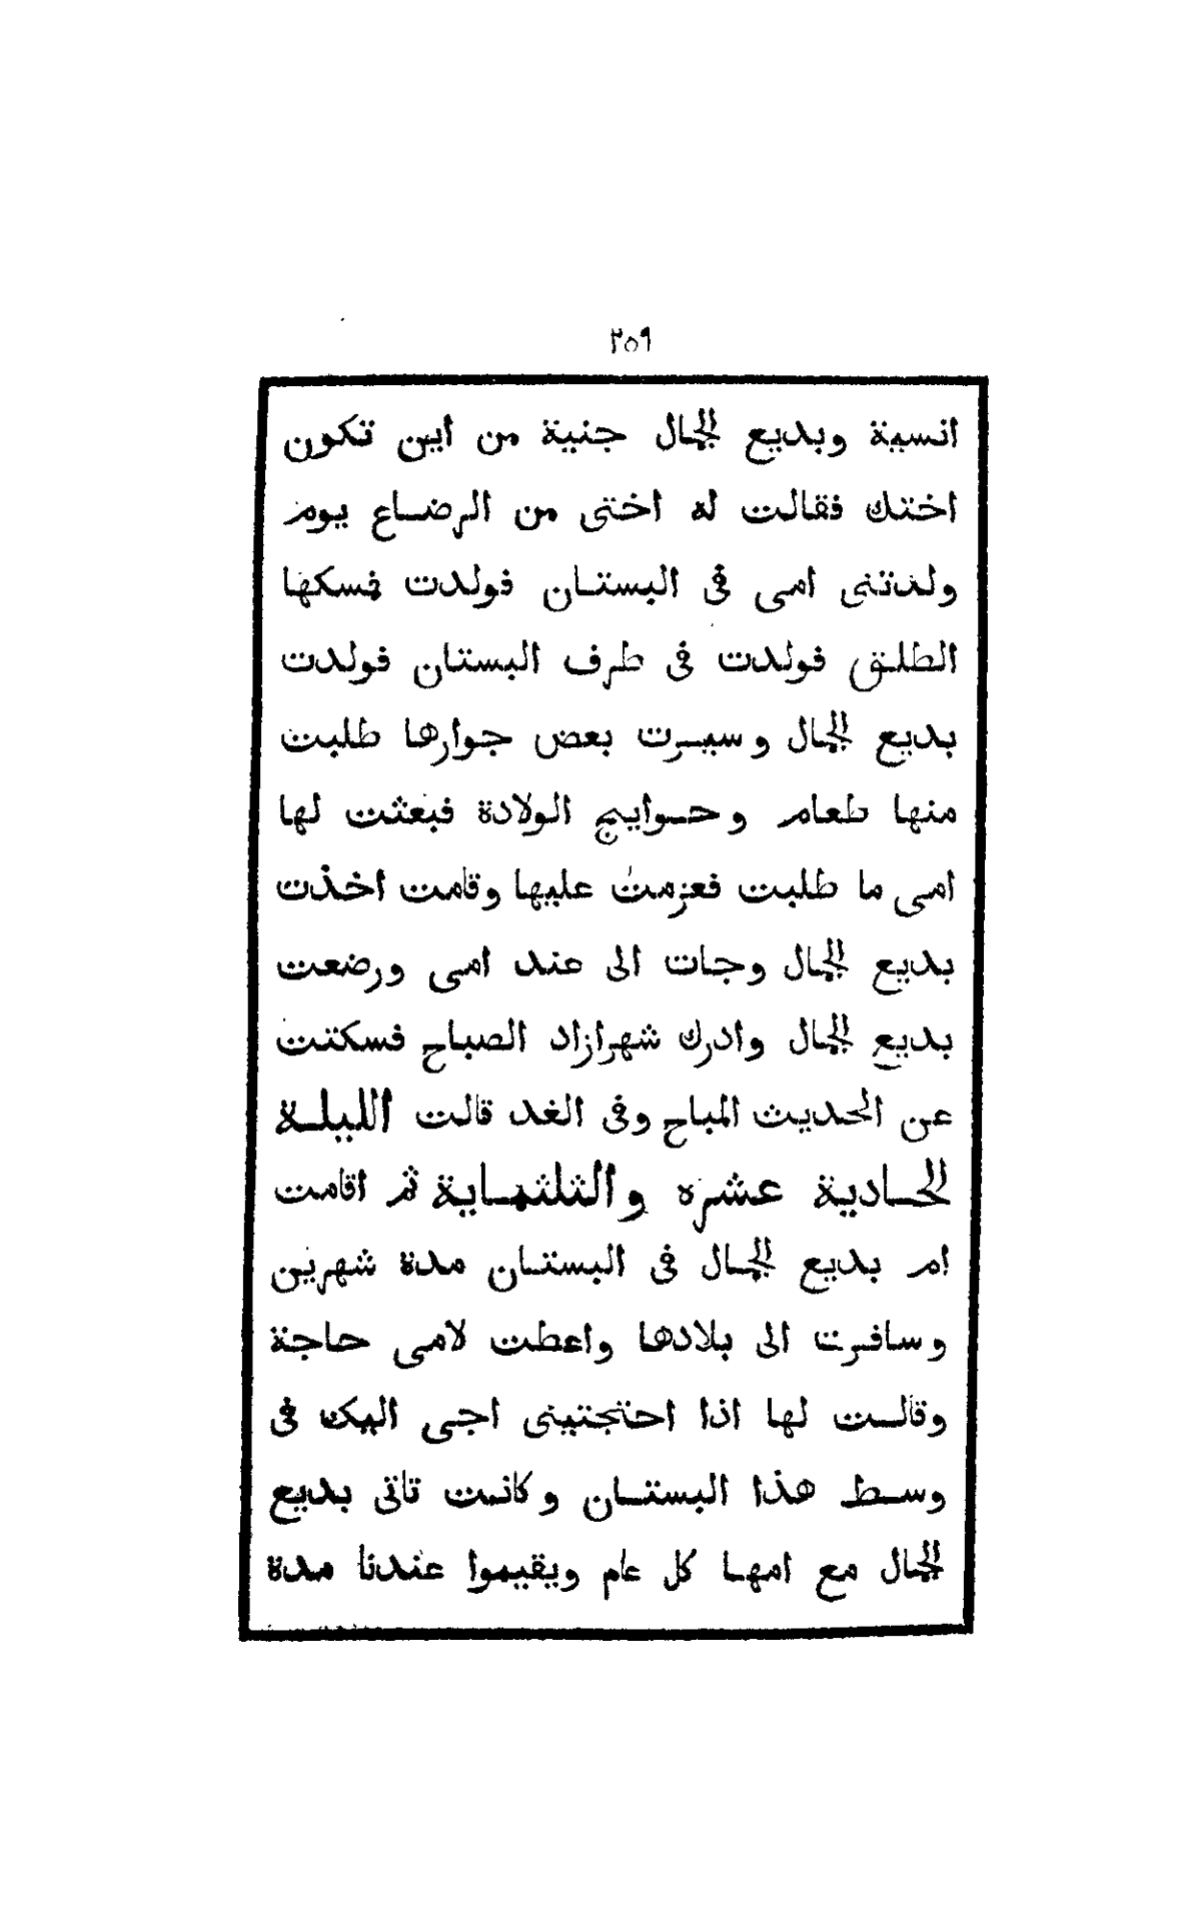 ٢٥٩
انسية وبديع الجمال جنية من اين تكون
اختك فقالت له اختى من الرضاع يوم
ولدتنى امى فى البستان فولدت فمسكها
الطلق فولدت فى طرف البستان فولدت
بديع الجمال وسيرت بعض جوارها طلبت
منها طعام وحوايج الولادة فبعثت لها
امى ما طلبت فعزمت عليها وقامت اخذت
بديع الجمال وجات الى عند امى ورضعت
بديع الجمال وادرك شهرازاد الصباح فسكتت
عن الحديث المباح وفى الغد قالت الليلة
الحادية عشره والثلثماية ثم اقامت
ام بديع الجمال فى البستان مدة شهرين
وسافرت الى بلادها واعطت لامى حاجة
وقالت لها اذا احتجتينى اجى اليك فى
وسط هذا البستان وكانت تاتى بديع
الجمال مع امها كل عام ويقيموا عندنا مدة